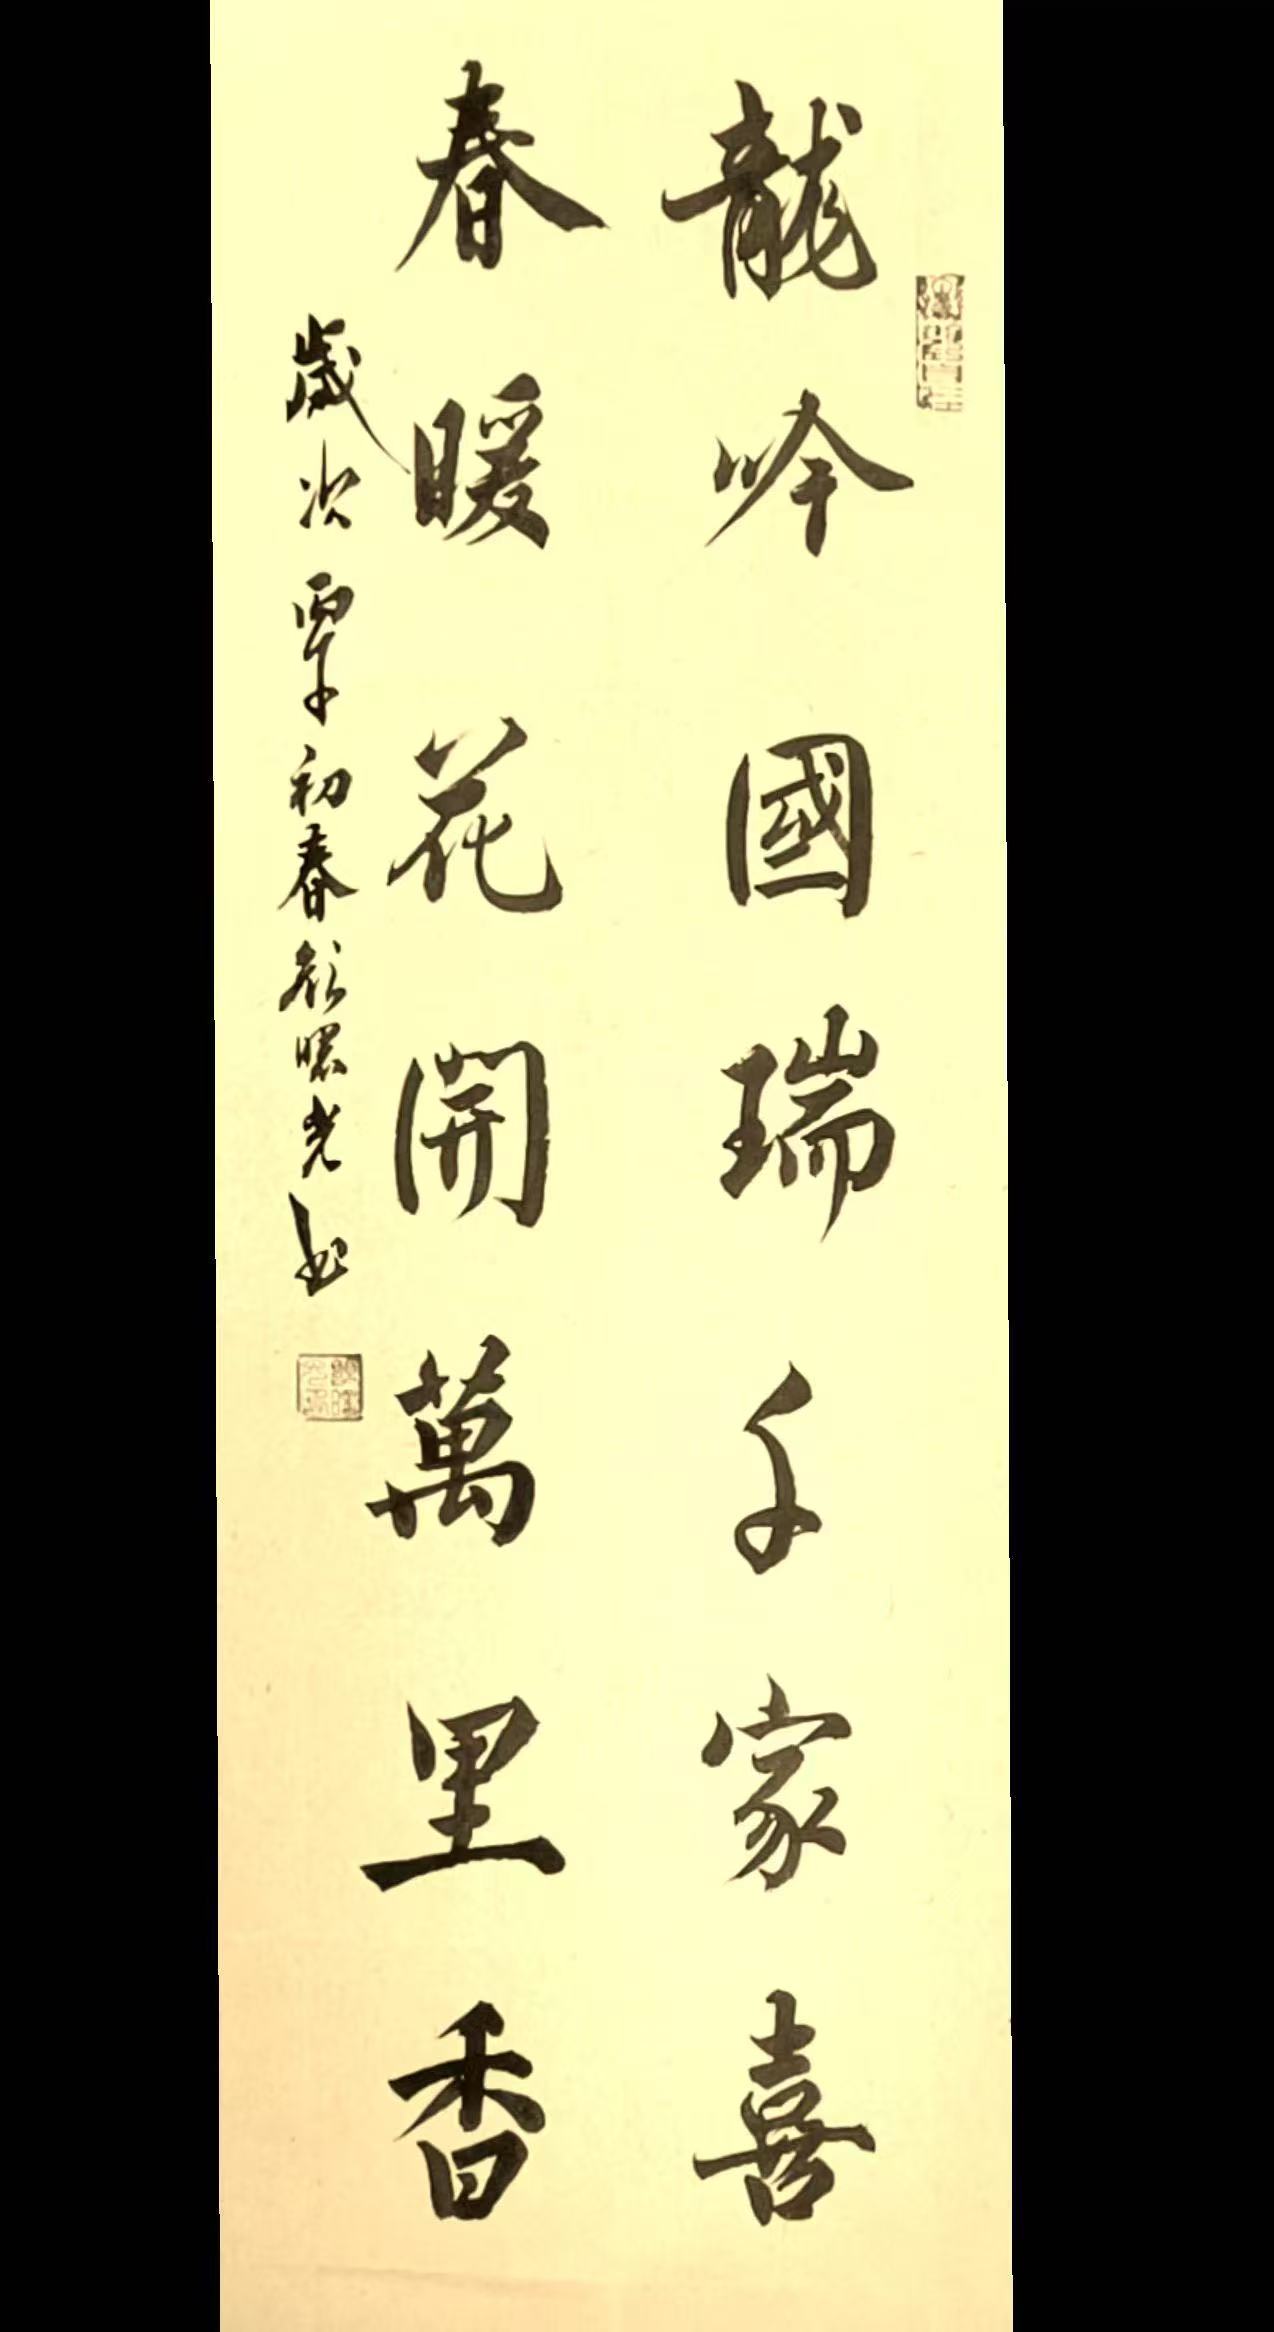 龍吟國瑞千家喜
春暖花開萬里香
歲次 初春 光書